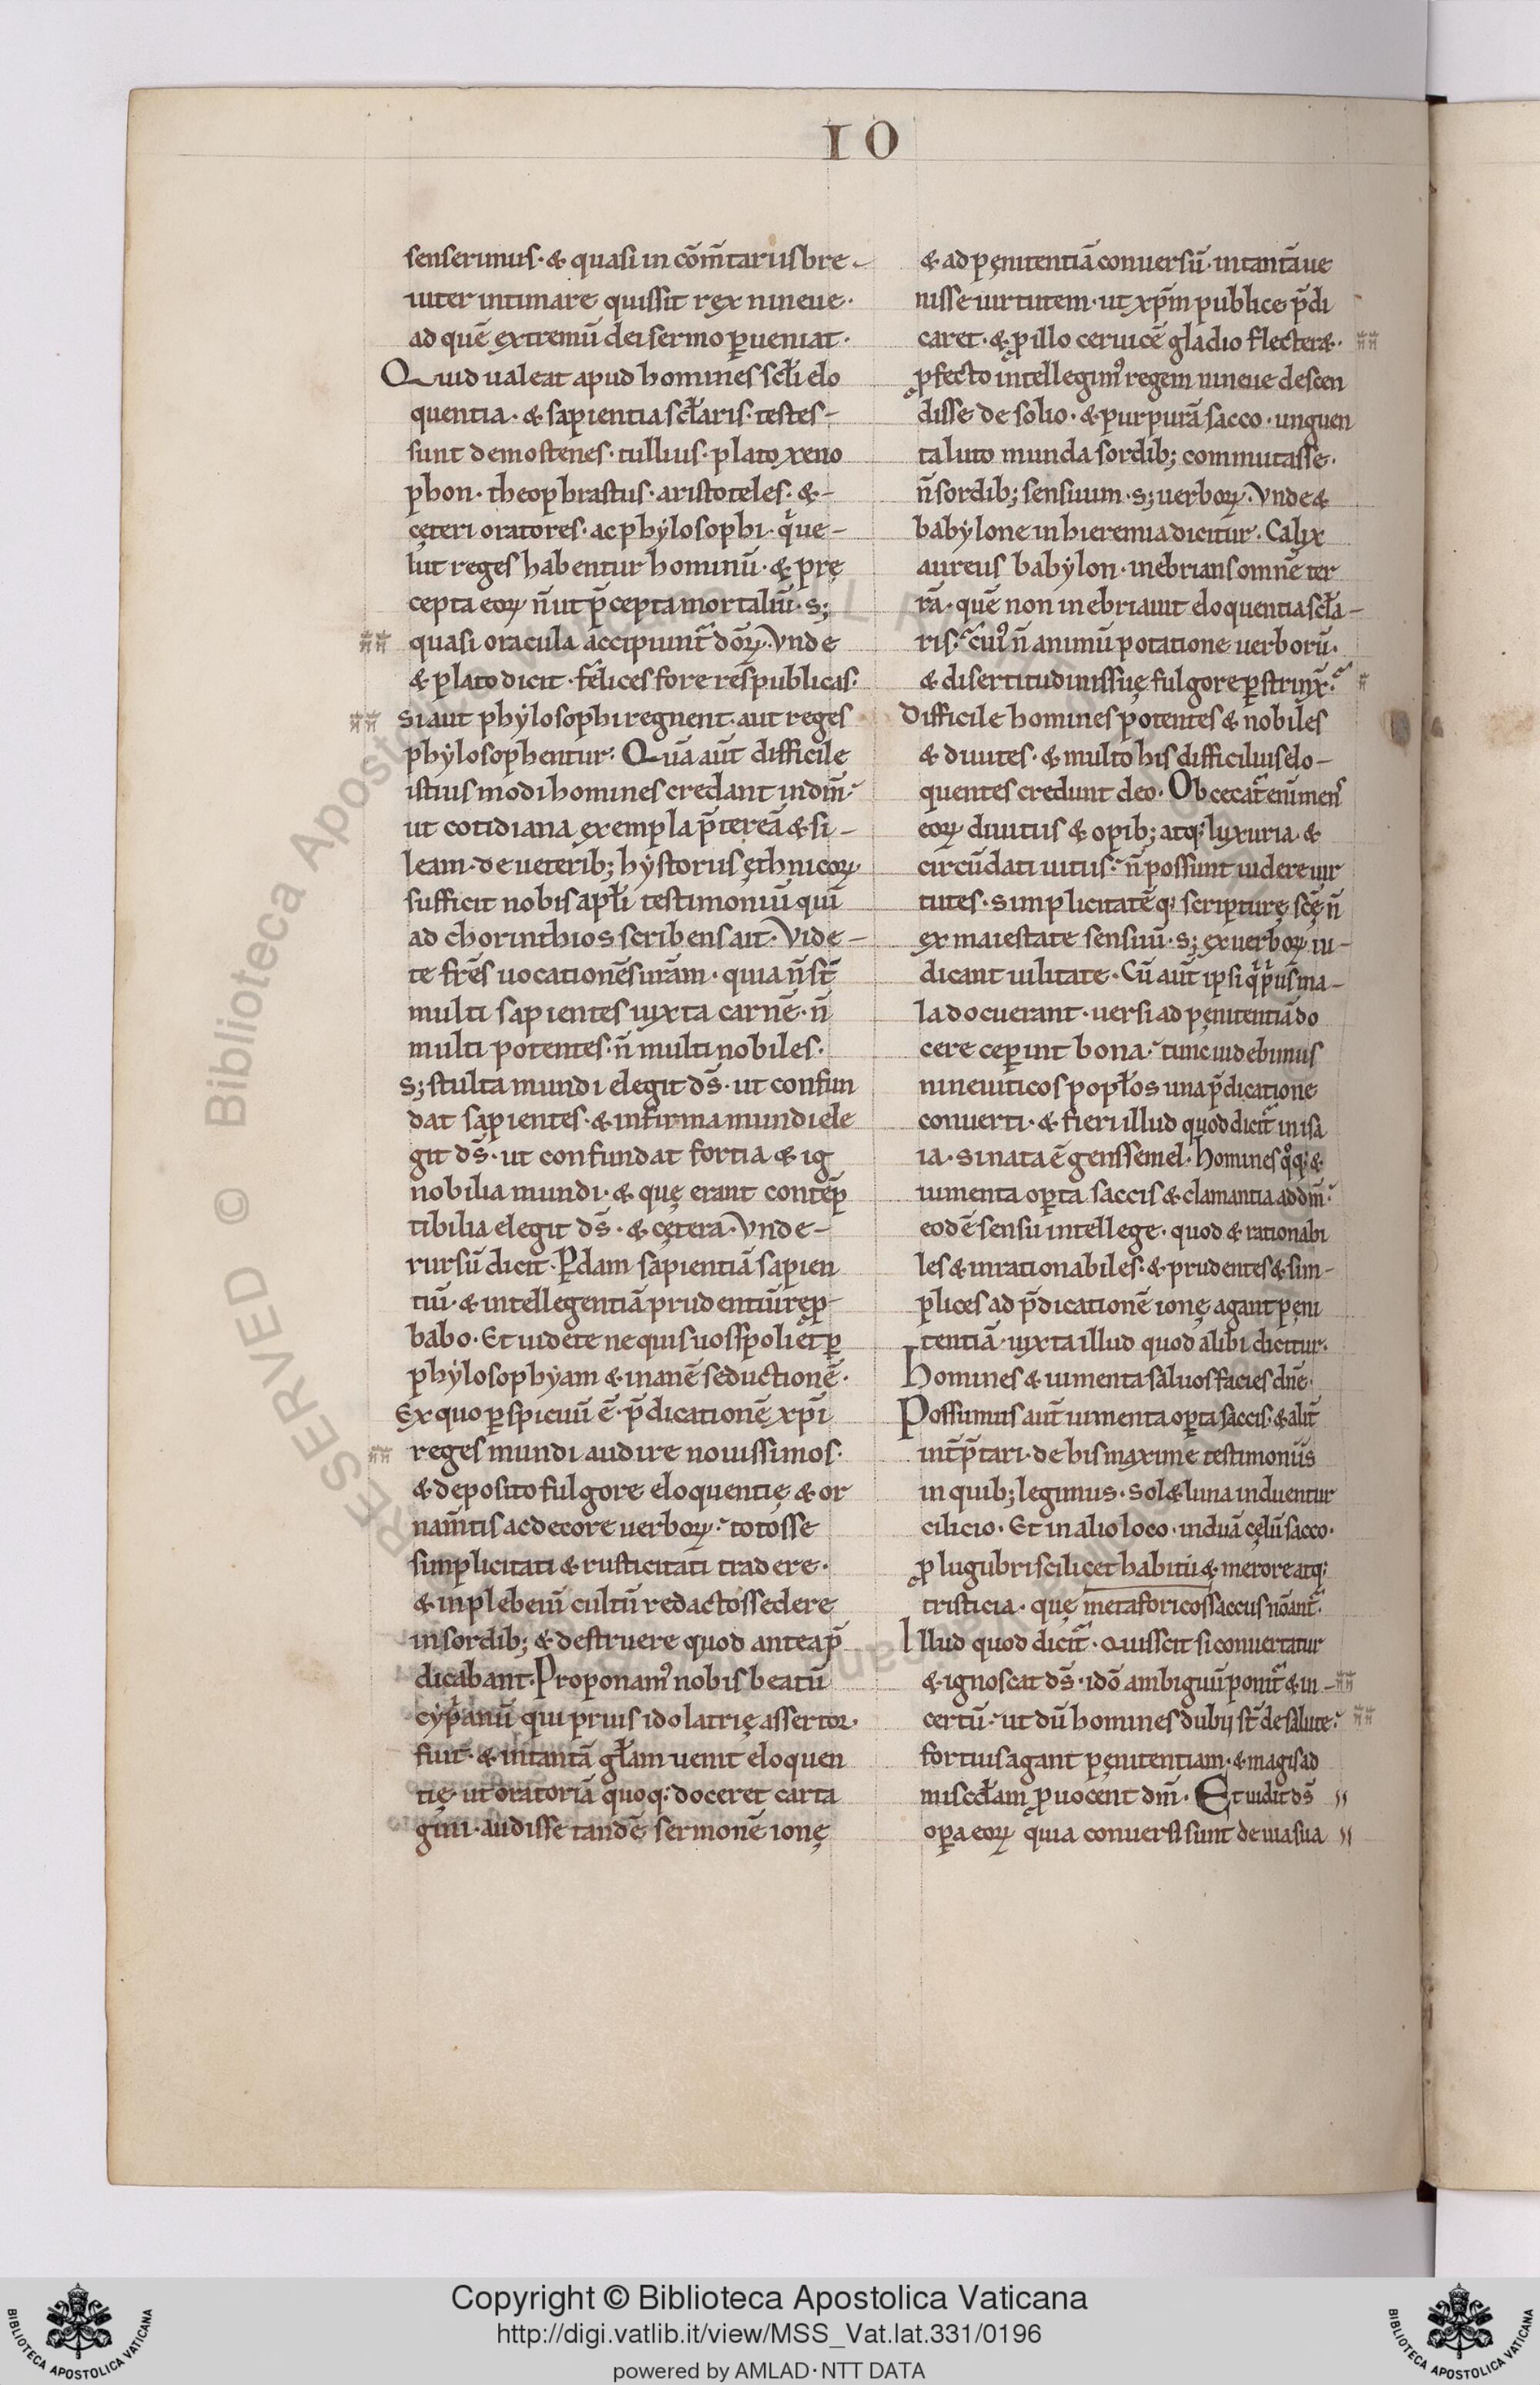 IO
senserimus· & quasi in cōm̄tariis bre-
uiter intimare quissit rex nineue·
ad quē extremū dei sermo ꝑueniat·
Quid ualeat apud homines sc̄łi elo
quentia· & sapientia sc̄łaris· testes-
sunt demostenes· tullius· plato xeno
phon· theophrastus· aristoteles· &-
cęteri oratores· ac phẏlosophi· q̇ ue-
lut reges habentur hominū· & prę
cepta eoꝝ n̄ ut p̄cepta mortaliū· s;
quasi oracula accipiunt᷑ dōꝝ· Vnde
& plato dicit· felices fore res publicas·
si aut phẏlosophi regnent· aut reges
phẏlosophentur· Quā aūt difficile
istius modi homines credant in dm̄·
ut cotidiana exempla p̄tereā & si-
leam· de ueterib; hẏstoriis ęthnicoꝝ·
sufficit nobis apłi testimoniū qui
ad chorinthios scribens ait· Vide-
te fr̄es uocationēs uram̄· quia n̄ st̄
multi sapientes iuxta carnē· n̄
multi potentes· n̄ multi nobiles·
s; stulta mundi elegit ds̄· ut confun
dat sapientes· & infirma mundi ele
git ds̄· ut confundat fortia & ig
nobilia mundi· & quę erant contēp
tibilia elegit ds̄· & cętera· Vnde-
rursū dicit· Ꝑdam sapientiā sapien
tiū· & intellegentiā prudentiū rep-
babo· Et uidete ne quis uos spoliet ꝑ
phẏlosophyam & inanē seductionē·
Ex quo ꝑspicuū ē· p̄dicationē xp̄i
reges mundi audire nouissimos·
& deposito fulgore eloquentię & or
nam̄tis ac decore uerboꝝ· totos se
simplicitati & rusticitati tradere·
& in plebeiū cultū redactos sedere
in sordib; & destruere quod antea p̄
dicabant· Proponamꝰ nobis beatū
cẏp̄anū qui prius idolatrię assertor·
fuit· & in tantā głam uenit eloquen
tię· ut oratoriā quoq; doceret carta
gini· audisse tandē sermonē ionę
& ad pęnitentiā conuersū· in tantā ue
nisse uirtutem· ut xp̄m publice p̄di
caret· & ꝓ illo ceruicē gladio flecteret·
ꝓfecto intellegimꝰ regem nineue descen
disse de solio· & purpurā sacco· unguen
ta luto munda sordib; commutasse·
n̄ sordib; sensuum· s; uerboꝝ· Vnde &
babẏlone in hieremia dicitur· Calix
aureus babẏlon· inebrians omnē ter
rā· quē non inebriauit eloquentia scła-
ris· cuiꝰ n̄ animū potatione uerborū·
& disertitudinis suę fulgore ꝑstrinx̄·
Difficile homines potentes & nobiles
& diuites· & multo his difficilius elo-
quentes credunt deo· Obcecat᷑ enim̄ mens
eoꝝ diuitiis & opib; atq; luxuria· &
circūdati uitiis· n̄ possunt uidere uir
tutes· simplicitatē q; scripturę scę̄ n̄
ex maiestate sensuū· s; ex uerboꝝ iu-
dicant uilitate· Cū aūt ipsi q̇ pꝰ ma-
la docuerant· uersi ad pęnitentiā do
cere ceꝑint bona· tunc uidebimus
nineuiticos popłos una p̄dicatione
conuerti· & fieri illud quod dicit᷑ in isa
ia· Si nata ē gens semel· Homines qꝰq; &
iumenta oꝑta saccis & clamantia ad dm̄·
eodē sensu intellege· quod & rationabi
les & inrationabiles· & prudentes & sim-
plices ad p̄dicationē ionę agant pęni
tentiā· iuxta illud quod alibi dicitur·
Homines & iumenta saluos facies dn̄e·
Possumus aūt iumenta oꝑta saccis· & alit̄
int̄p̄tari· de his maxime testimoniis
in quib; legimus· Sol & luna induentur
cilicio· Et in alio loco· induā cęlū sacco·
ꝓ lugubri scilicet habitu & merore atq;
tristicia· quę metaforicos saccus nōant̄·
Illud quod dicit᷑· Quis scit si conuertatur
& ignoscat ds̄· idō ambiguū ponit᷑ & in-
certū· ut dū homines dubij st̄ de salute·
fortius agant pęnitentiam· & magis ad
misc̄dłam ꝓuocent dm̄· Et uidit ds̄
oꝑa eoꝝ quia conuersi sunt de uia sua
Copyright © Biblioteca Apostolica Vaticana
http://digi.vatlib.it/view/MSS_Vat.lat.331/0196
powered by AMLAD·NTT DATA